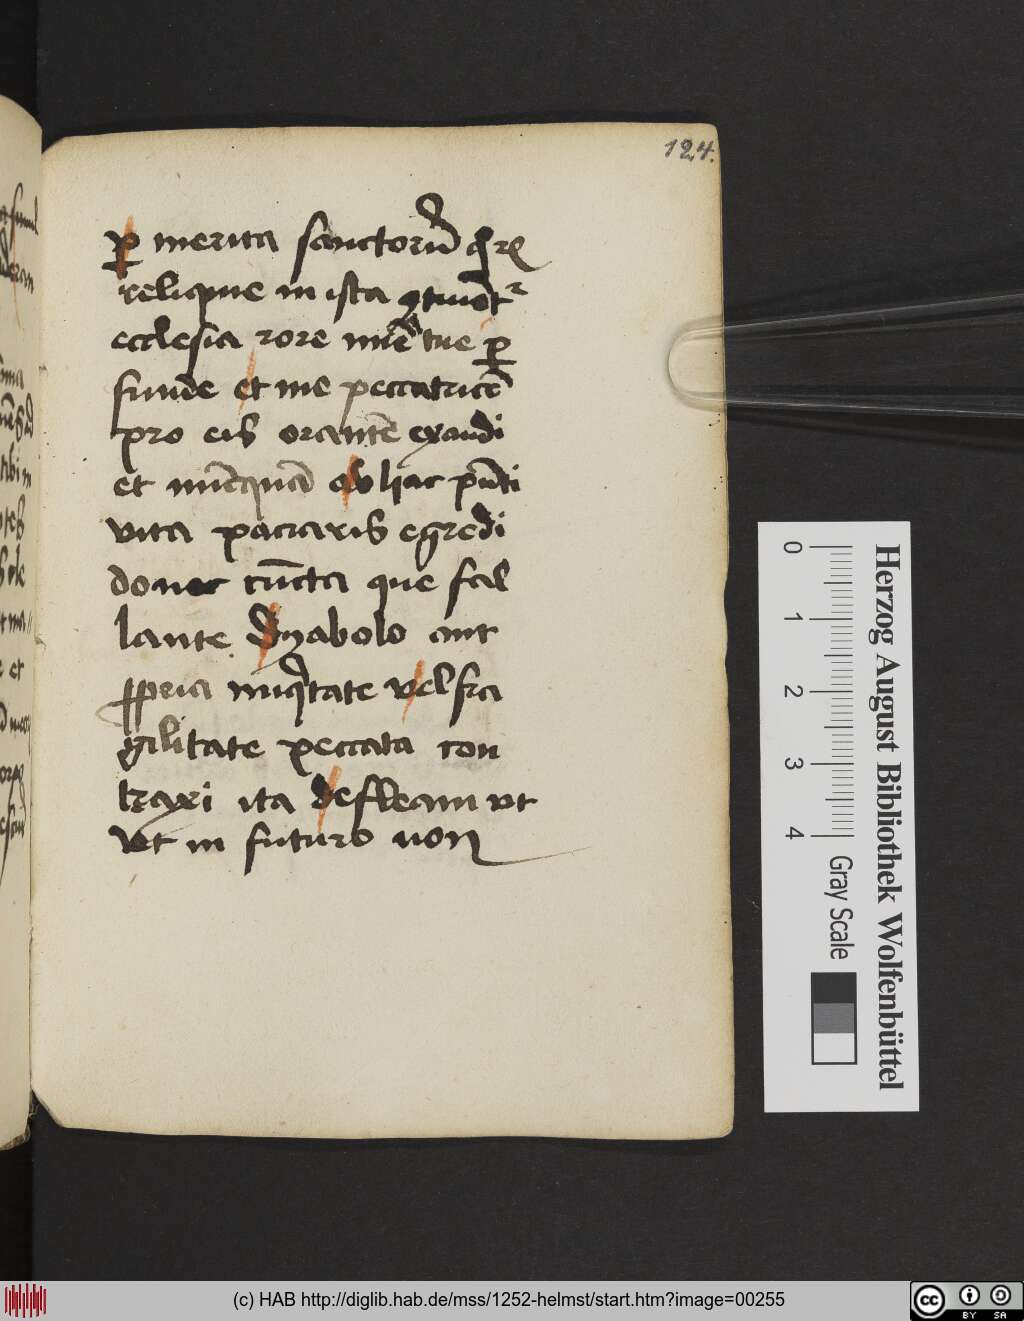 124.
ꝑ merita sanctorū qrꝫ
relique in ista ꝯtinētᷣ
ecclesia rore mīe tue ꝑ
funde et me peccatricē
pro eis orantē exaudi
et nūcquā ab hac pn̄ti
vita paciaris egredi
donec cūcta que fal
lante dyabolo aut
ꝓpria iniqͥtate vel fra
gilitate peccata con
traxi ita defleam vt
Vt in futuro non
Herzog August Bibliothek Wolfenbüttel
0 1 2 3 4 Gray Scale
(c) HAB http://diglib.hab.de/mss/1252-helmst/start.htm?image=00255
cc BY SA